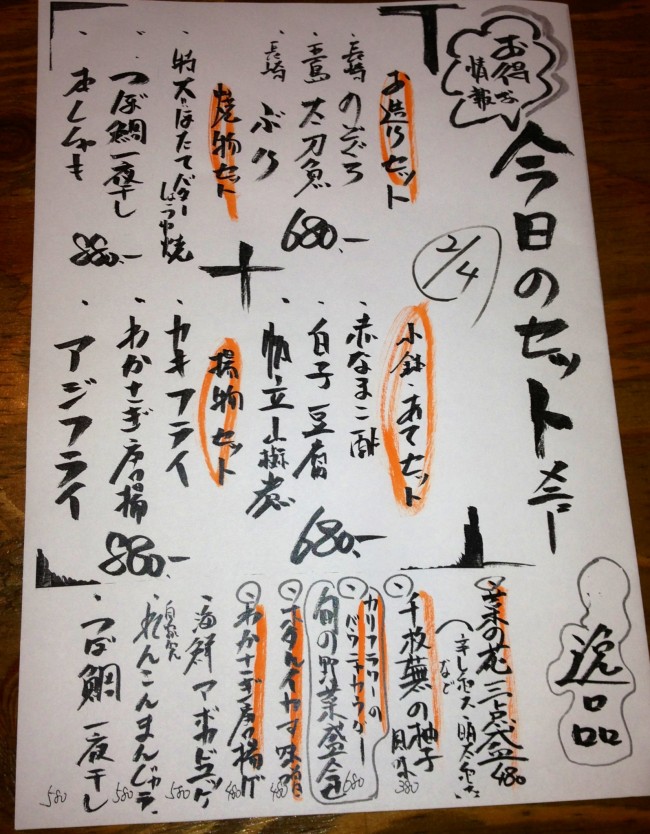 お得な
情報
今日のセットメニュー
2/4
お造りセット
・長崎 のどぐろ
・五島 太刀魚
・長崎 ぶり
680.-
焼物セット
・特大ほたてバター
しょうゆ焼
・つぼ鯛一夜干し
880.-
小鉢・あてセット
・赤なまこ酢
・白子豆腐
・帆立山椒煮
680.-
揚物セット
・カキフライ
・わかさぎ唐揚
・アジフライ
880.-
逸品
・菜の花三点盛 480
など
・千枚蕪の柚子風味 380
・カリフラワーの
バーニャカウダー
旬の野菜盛合 680
・ホタルイカ酢味噌 480
・わかさぎ唐揚げ 480
・海鮮アボカドユッケ 580
・自家製れんこんまんじゅう 580
・つぼ鯛一夜干し 580